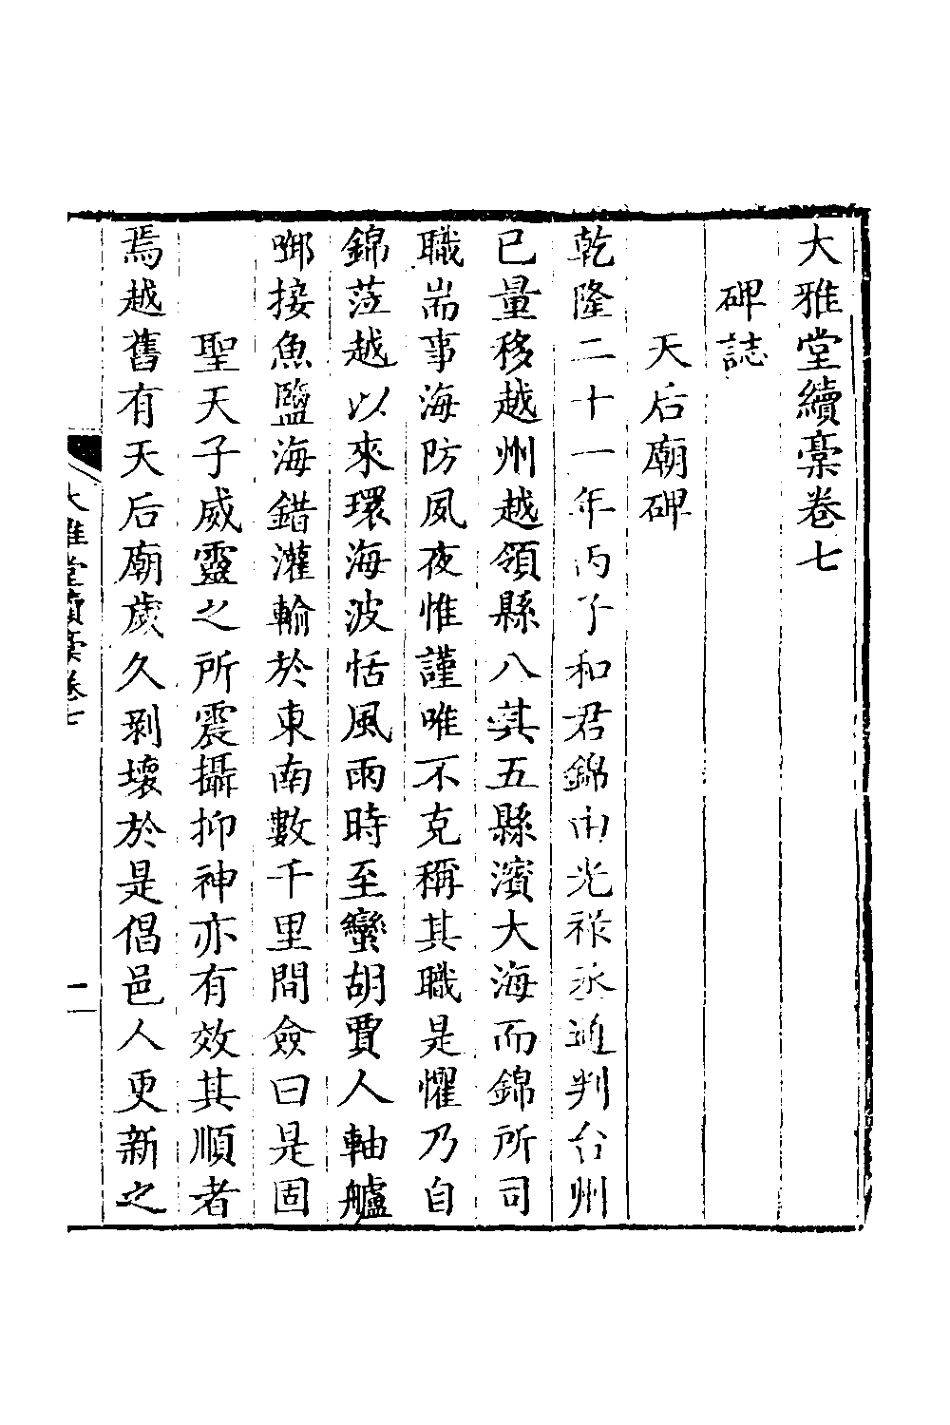 大雅堂續稾卷七
碑誌
天后廟碑
乾隆二十一年丙子和君錦由光祿丞通判台州
已量移越州越領縣八其五縣濱大海而錦所司
職耑事海防夙夜惟謹唯不克稱其職是懼乃自
錦蒞越以來環海波恬風雨時至蠻胡賈人軸艫
啣接魚鹽海錯灌輸於東南數千里間僉曰是固
聖天子威靈之所震攝抑神亦有效其順者
焉越舊有天后廟歲久剥壞於是倡邑人更新之
大雅堂續稾卷七
一